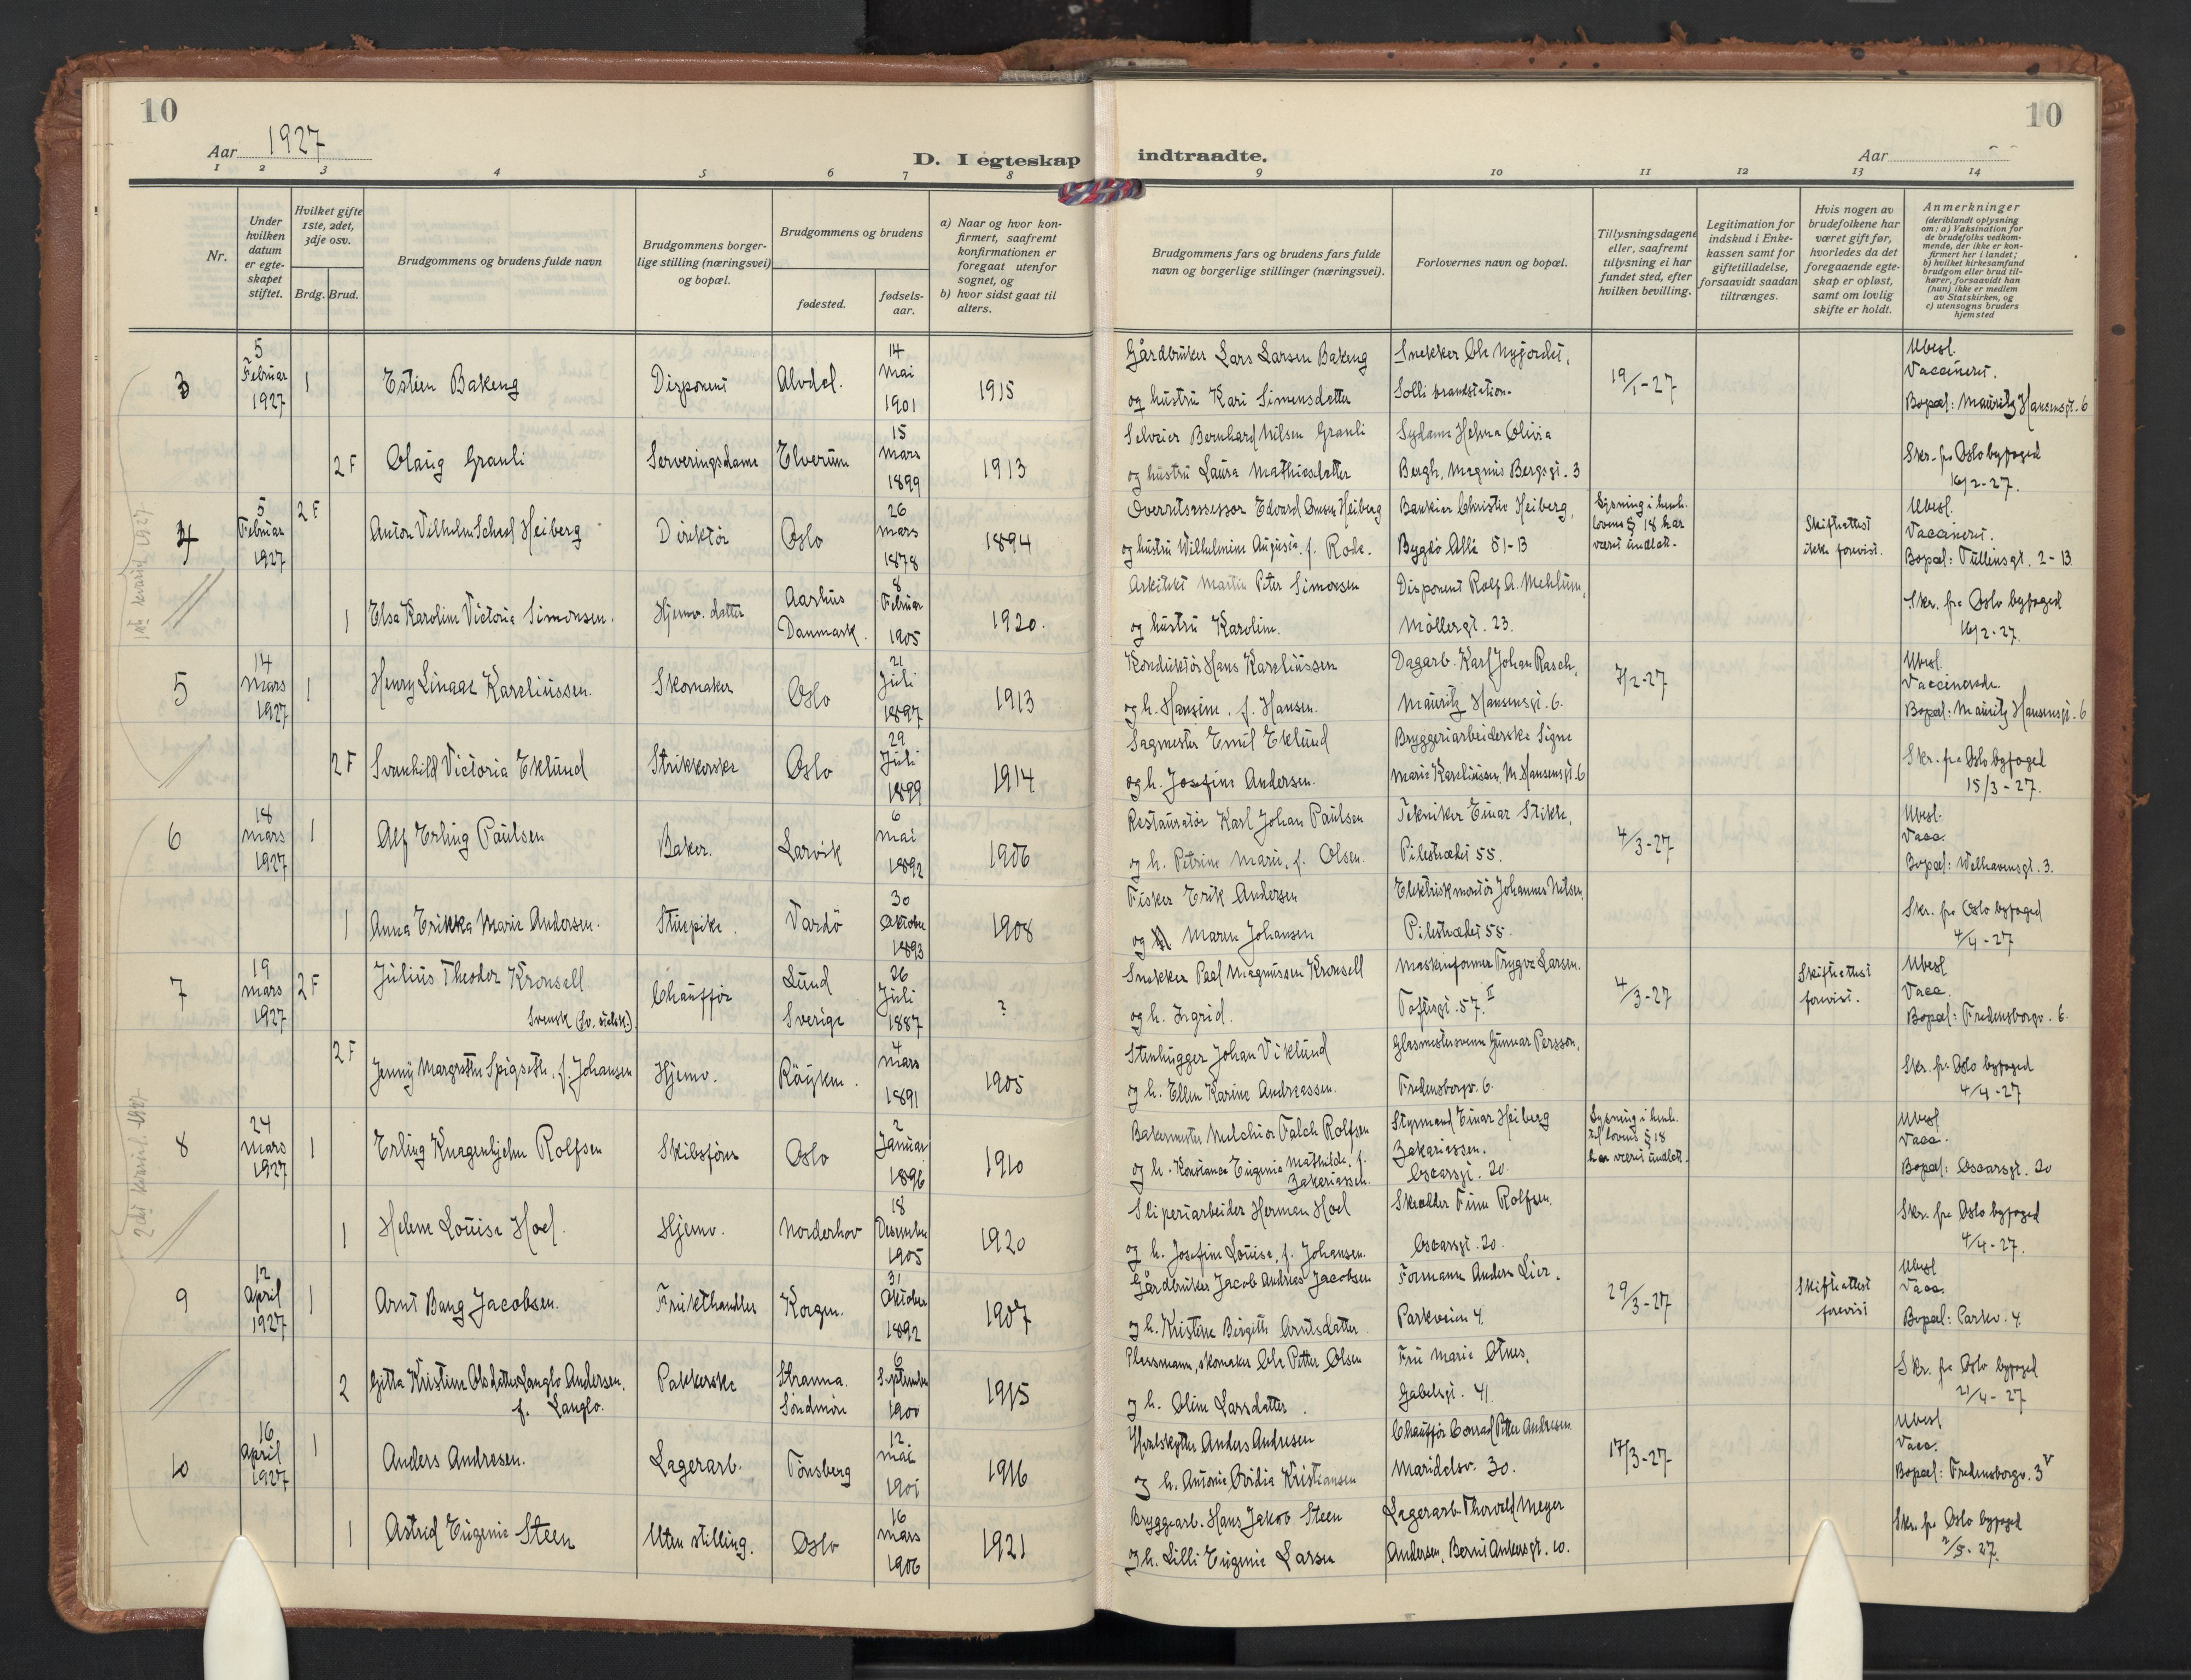 10
10
Aar 1927
D. I egteskap indtraadte.
Aar
1 2 3 4 5 6 7 8 9 10 11 12 13 14
Nr.
Under hvilken datum er egte-skapet stiftet.
Hvilket gifte 1ste, 2det, 3dje osv.
Brdg. Brud.
Brudgommens og brudens fulde navn
Brudgommens borger-lige stilling (næringsvei) og bopæl.
Brudgommens og brudens
fødested.
fødsels-aar.
a) Naar og hvor kon-firmert, saafremt konfirmationen er foregaat utenfor sognet, og
b) hvor sidst gaat til alters.
Brudgommens fars og brudens fars fulde navn og borgerlige stillinger (næringsvei).
Forlovernes navn og bopæl.
Tillysningsdagene eller, saafremt tillysning ei har fundet sted, efter hvilken bevilling.
Legitimation for indskud i Enke-kassen samt for giftetilladelse, forsaavidt saadan tiltrænges.
Hvis nogen av brudefolkene har været gift før, hvorledes da det foregaaende egte-skap er opløst, samt om lovlig skifte er holdt.
Anmerkninger
(deriblandt oplysning om: a) Vaksination for de brudefolks vedkom-mende, der ikke er kon-firmert her i landet; b) hvilket kirkesamfund brudgom eller brud til-hører, forsaavidt han (hun) ikke er medlem av Statskirken, og c) utensogns bruders hjemsted
3 5 Februar 1927 1 Estien Bakeng Disponent Alvdal. 14 Mai 1901 1915
Gårdbruker Lars Larsen Bakeng og hustru Kari Simensdatter
Snekker Ole Nygjordet, Solli brandstation.
19/1-27
Ubesl. Vaccinert. Bopæl: Mauritz Hansensgt. 6
2 F Olaug Granli Serveringsdame Elverum 15 Mars 1899 1913
Selveier Bernhard Nilsen Granli og hustru Laura Mathiasdatter
Sydame Helma Olivia Bergh, Magnus Bergsgt. 3
Skr. fra Oslo byfoged 16/2-27.
4 5 Februar 1927 2 F Anton Vilhelm Scheel Heiberg Direktør Oslo 26 Mars 1878 1894
Overretsassessor Edvard Omsen Heiberg og hustru Wilhelmine Augusta, f. Rode.
Bankier Christie Heiberg, Bygdø Allé 51-13
Lysning i henh. lovens § 18 har været undlatt.
Skifteattest ikke forevist.
Ubesl. Vaccinert. Bopæl: Tullinsgt. 2-13
1 Elsa Karoline Victoria Simonsen. Hjemv. datter Aarhus Danmark. 8 Februar 1905 1920.
Arkitekt Martin Peter Simonsen og hustru Karoline.
Disponent Rolf A. Mehlum, Møllergt. 23.
Skr. fra Oslo byfoged 16/2-27.
1ste kvartal 1927
5 14 Mars 1927 1 Henry Linaae Kareliussen. Skomaker Oslo 21 Juli 1897 1913
Konduktør Hans Kareliussen og h. Hansine, f. Hansen.
Dagarb. Karl Johan Rasch, Mauritz Hansensgt. 6.
7/2-27
Ubesl. Vaccinerede. Bopæl: Mauritz Hansensgt. 6
2 F Svanhild Victoria Eklund Strikkerske Oslo 29 Juli 1899 1914
Sagmester Emil Eklund og h. Josefine Andersen.
Bryggeriarbeiderske Signe Marie Kareliussen, M. Hansensgt. 6
Skr. fra Oslo byfoged 15/3-27.
6 18 Mars 1927 1 Alf Erling Paulsen Baker. Larvik 6 Mai 1892 1906
Restauratør Karl Johan Paulsen og h. Petrine Marie, f. Olsen.
Tekniker Einar Stikle, Pilestrædet 55.
4/3-27
Ubesl. Vacc. Bopæl: Welhavensgt. 3.
1 Anna Erikka Marie Andersen. Stuepike. Vardö 30 Oktober 1893 1908
Fisker Erik Andersen og Maren Johansen
Elektriskmontør Johannes Nilsen, Pilestrædet 55.
Skr. fra Oslo byfoged 4/4-27
7 19 Mars 1927 2 F Julius Theodor Kronsell Svensk Chauffør Lund Sverige 26 Juli 1887 ?
Snekker Paal Magnussen Kronsell og h. Ingrid.
Maskinformer Trygve Larsen. Toftesgt. 57. II
4/3-27
Skifteattest forevist.
Ubesl Vacc. Bopæl: Fredensborgv. 6.
2 F Jenny Margrethe Spigseth, f. Johansen Hjemv. Röyken. 4 Mars 1891 1905
Stenhugger Johan Viklund og h. Ellen Karine Andreassen.
Glasmestersvenn Gunnar Persson, Fredensborgv. 6.
Skr. fra Oslo byfoged 4/4-27
2det kvartal 1927
8 24 Mars 1927 1 Erling Knagenhjelm Rolfsen Skibsfører Oslo 2 Januar 1896 1910
Bakermester Melchior Falch Rolfsen og h. Konstance Eugenie Mathilde, f. Zakariassen.
Styrmand Einar Heiberg Zakariassen. Oscarsgt. 20.
Lysning i henh. til lovens § 18 har været undlatt.
Ubesl Vacc. Bopæl: Oscarsgt. 20
1 Helene Louise Hoel. Hjemv. Norderhov 18 Desember 1905 1920
Sliperiarbeider Herman Hoel og h. Josefine Louise, f. Johansen.
Skrædder Finn Rolfsen. Oscarsgt. 20.
Skr. fra Oslo byfoged 4/4-27.
9 12 April 1927 1 Arnt Bang Jacobsen. Frukthandler Korgen. 31 Oktober 1892 1907
Gårdbruker Jacob Andreas Jacobsen og h. Kristine Birgitte Arntsdatter
Formann Anders Lier. Parkveien 4.
29/3-27
Skifteattest forevist
Ubesl Vacc. Bopæl: Parkv. 4.
2 Gitta Kristine Olsdatter Langlo Andersen, f. Langlo. Pakkerske Stranna. Söndmöre 6 September 1900 1915
Plassmann, skomaker Ole Petter Olsen og h. Oline Larsdatter.
Fru Marie Olnes, Gabelsgt. 41.
Skr. fra Oslo byfoged 21/4-27
10 16 April 1927 1 Anders Andresen. Lagerarb. Tönsberg 12 Mai 1901 1916
Hvalskytter Anders Andresen og h. Antonie Ovidia Kristiansen
Chauffør Conrad Petter Andresen Maridalsv. 30.
17/3-27
Ubesl Vacc. Bopæl: Fredensborgv. 3 V
1 Astrid Eugenie Steen Uten stilling. Oslo 16 Mars 1906 1921
Bryggearb. Hans Jakob Steen og h. Lilli Eugenie Larsen
Lagerarb. Thorvald Meyer Andersen, Bernt Ankersgt. 10.
Skr. fra Oslo byfoged 2/5-27.